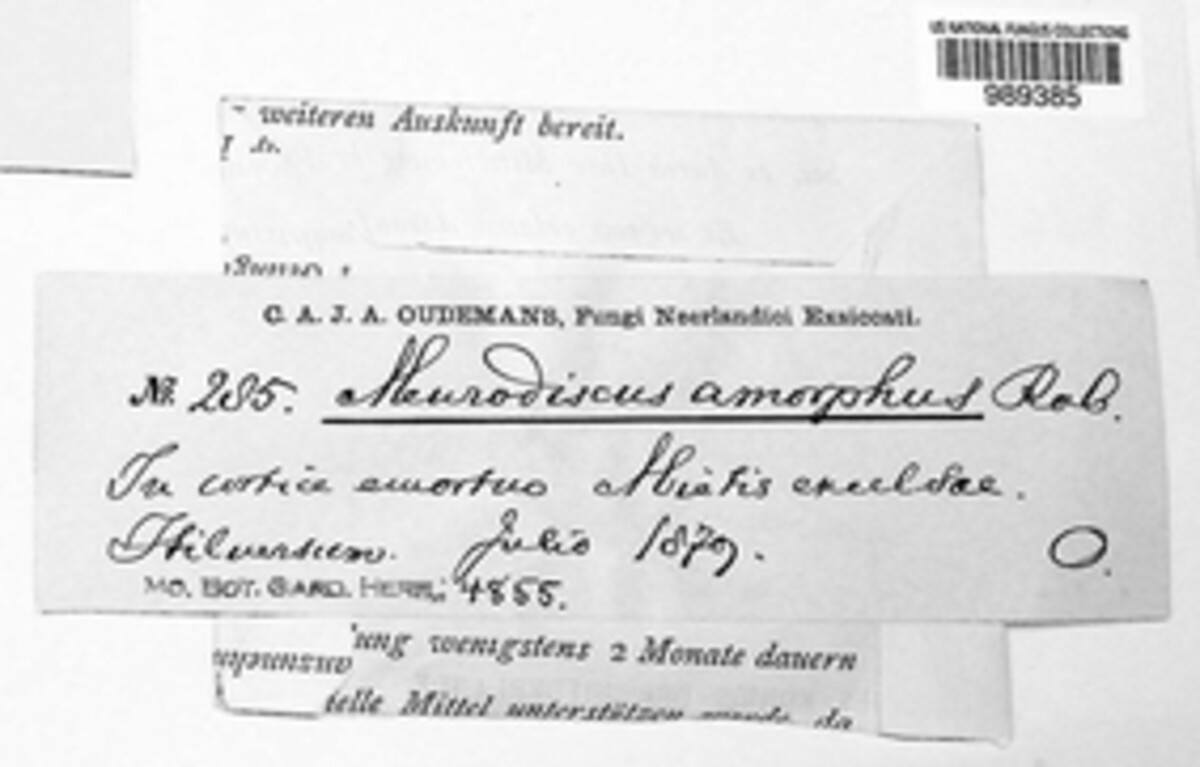 US NATIONAL FUNGUS COLLECTIONS
989385
weiteren Auskunft bereit.
C. A. J. A. OUDEMANS, Fungi Neerlandici Exsiccati.
No. 285. Aleurodiscus amorphus Rab.
In cortice emortuo Abietis excelsae.
Hilversum. Julio 1879. O.
MO. BOT. GARD. HERB., 4855.
ung wenigstens 2 Monate dauern
ielle Mittel unterstützen wurde, da